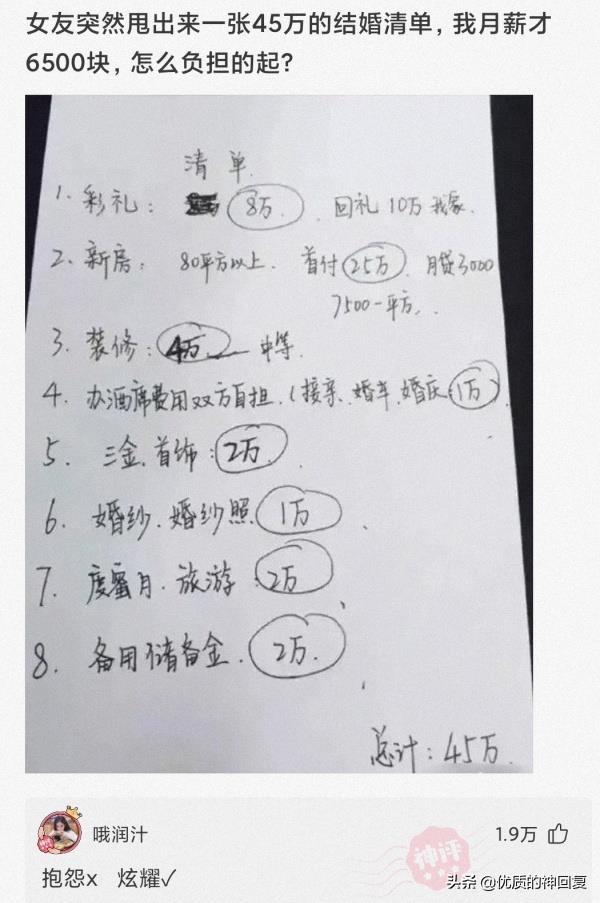 女友突然甩出来一张45万的结婚清单，我月薪才
6500块，怎么负担的起？
清单
1. 彩礼： 8万. 回礼10万我家.
2. 新房： 80平方以上. 首付25万. 月贷3000
7500一平方.
3. 装修：4万 中等.
4. 办酒席费用双方自担.（接亲、婚车、婚庆1万）
5. 三金.首饰：2万.
6. 婚纱.婚纱照 1万
7. 度蜜月.旅游：2万
8. 备用储备金. 2万.
总计：45万.
哦润汁
1.9万
抱怨x 炫耀✓
神评
头条 @优质的神回复